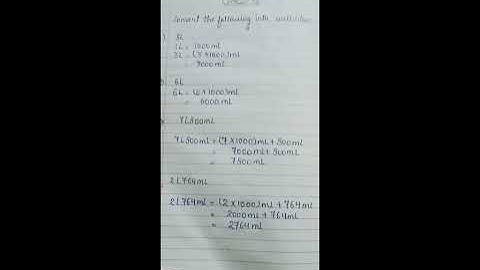 Convert the following into millilitres
3L
1L = 1000mL
3L = (3×1000)mL
= 3000mL
6L
6L = (6×1000)mL
= 6000mL
7L500mL
7L500mL = (7×1000)mL + 500mL
= 7000mL + 500mL
= 7500mL
2L764mL
2L764mL = (2×1000)mL + 764mL
= 2000mL + 764mL
= 2764mL